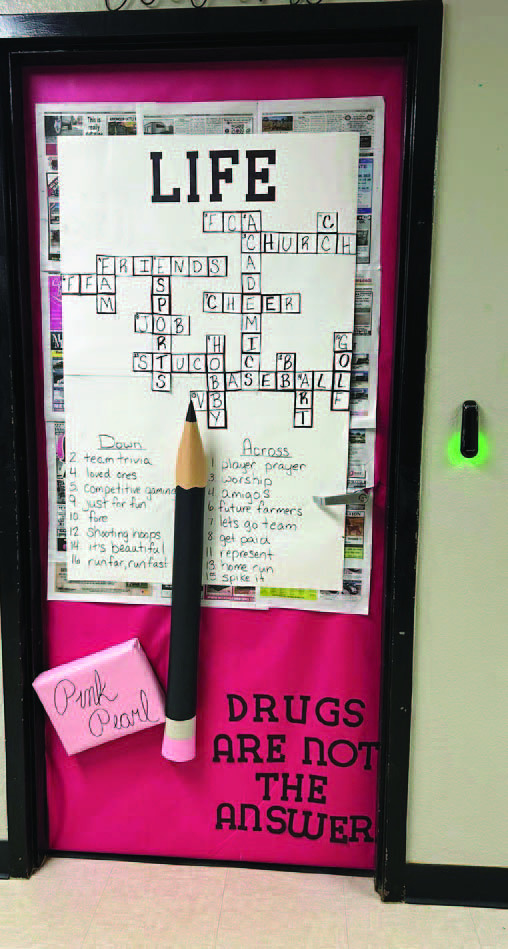 LIFE
FCA
CHURCH
FRIENDS
FFA
CHEER
JOB
STUCO
BASEBALL
ACADEMICS
FAM
ESPORTS
HOBBY
GOLF
ART
Down
2. team trivia
4. loved ones
5. competitive gaming
9. just for fun
10. fore
12. Shooting hoops
14. it's beautiful
16. run far, run fast
Across
1. player prayer
3. worship
4. amigos
6. future farmers
7. lets go team
8. get paid
11. represent
13. home run
15. spike it
Pink
Pearl
DRUGS
ARE NOT
THE
ANSWER